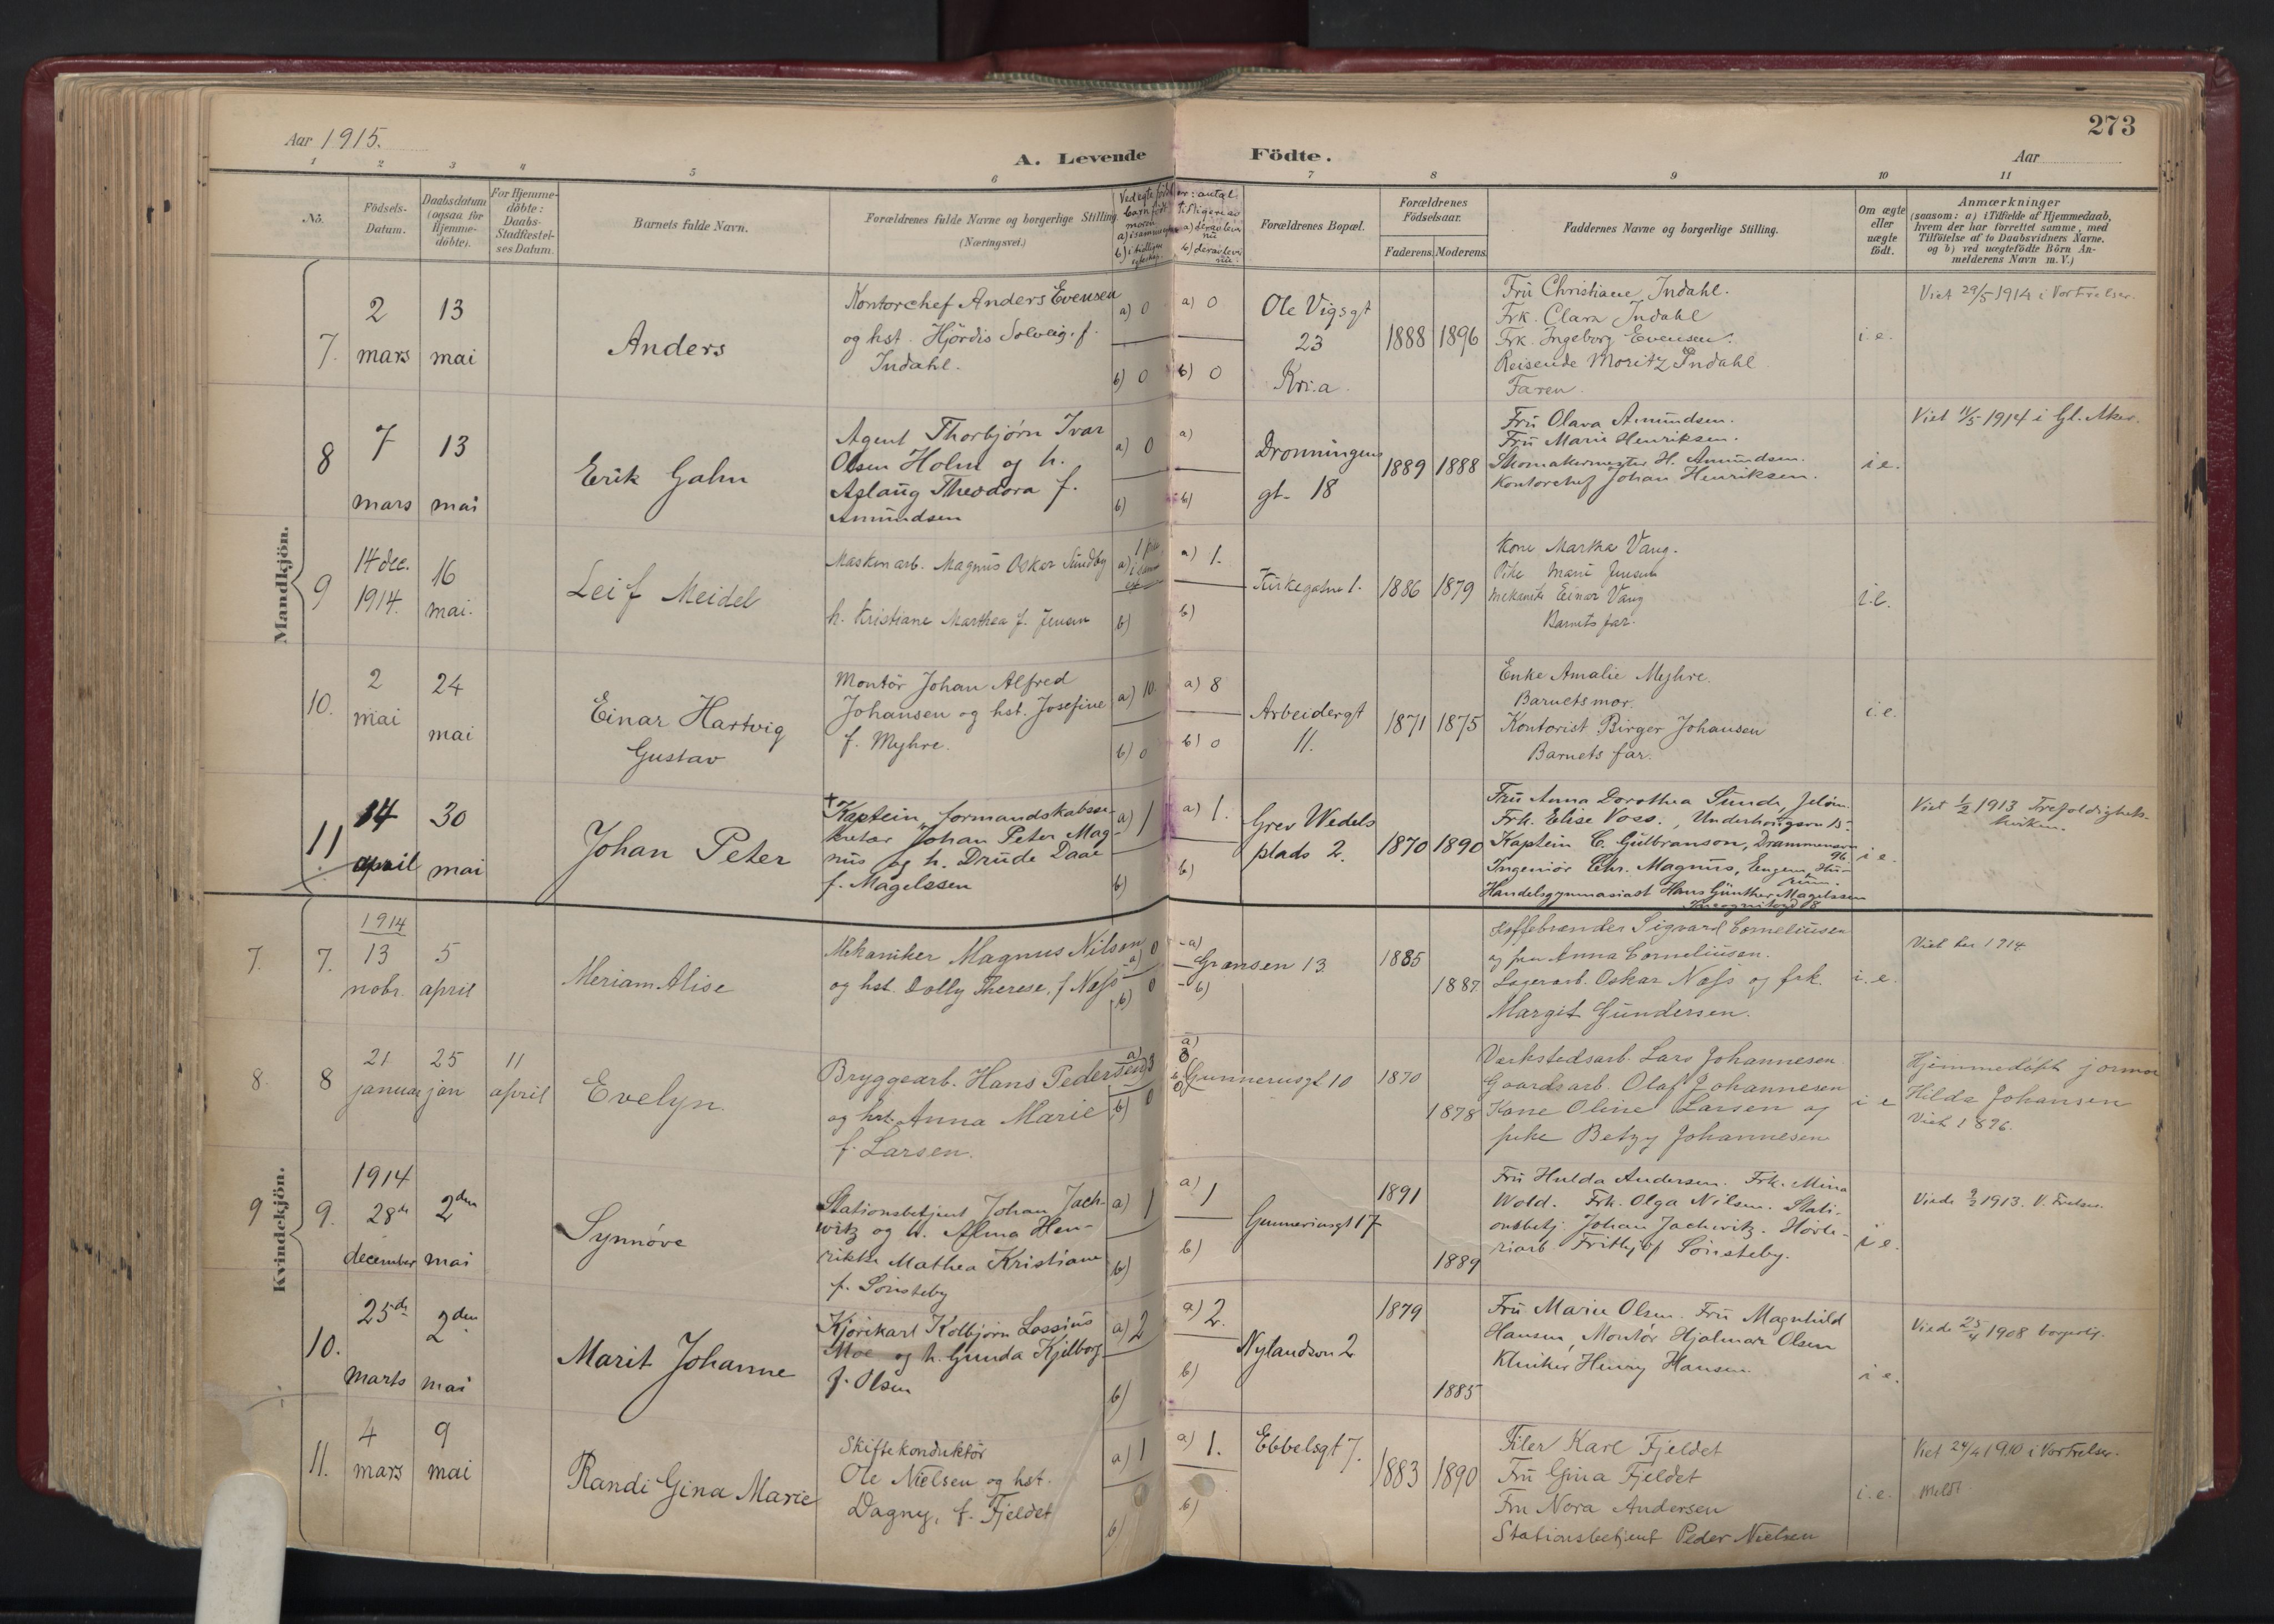 273
Aar 1915.
A. Levende Fødte.
Aar
1 2 3 4 5 6 7 8 9 10 11
No.
Födsels-
Datum.
Daabsdatum
(ogsaa for
Hjemme-
döbte).
For Hjemme-
döbte:
Daabs-
Stadfæstel-
ses Datum.
Barnets fulde Navn.
Forældrenes fulde Navne og borgerlige Stilling.
(Næringsvei.)
Forældrenes Bopæl.
Forældrenes
Födselsaar.
Faderens. Moderens.
Faddernes Navne og borgerlige Stilling.
Om ægte
eller
uægte
født.
Anmærkninger
(saasom: a) i Tilfælde af Hjemmedaab,
hvem der har forrettet samme, med
Tilföielse af to Daabsvidners Navne.
og b) ved uægtefödte Börn An-
melderens Navn m. V.)
Mandkjön.
7.
2
mars
13
mai
Anders
Kontorchef Anders Evensen
og hst. Hjördis Solveig. f.
Indahl.
a) 0
b) 0
a) 0
b) 0
Ole Vigsgt
23
Kr.a.
1888 1896
Fru Christiane Indahl.
Frk. Clara Indahl
Frk. Ingeborg Evensen.
Reisende Moritz Indahl
Faren.
i. e.
Viet 29/5 1914 i Vor Frelser.
8
7
mars
13
mai
Erik Gahn
Agent Thorbjørn Ivar
Olsen Holm og h.
Aslaug Theodora f.
Amundsen
a) 0
b)
a)
b)
Dronningens
gt. 18
1889 1888
Fru Olava Amundsen.
Fru Marie Henriksen.
Skomakermester H. Amundsen.
Kontorchef Johan Henriksen.
i e.
Viet 11/5 1914 i Gl. Aker.
9
14 dec.
1914.
16
mai.
Leif Meidel
Maskinarb. Magnus Oskar Sundby
h. Kristiane Marthea f. Jensen
a)
b)
a) 1.
b)
Kirkegaten 1.
1886 1879
Kone Martha Vang.
Pike Marie Jensen
Mekaniker Einar Vang
Barnets far.
i. e.
10.
2
mai
24
mai
Einar Hartvig
Gustav
Montör Johan Alfred
Johansen og hst. Josefine
f. Myhre.
a) 10.
b) 0
a) 8
b) 0
Arbeidergt
11.
1871 1875
Enke Amalie Myhre.
Barnets mor.
Kontorist Birger Johansen
Barnets far.
i. e.
11
14
april
30
mai
Johan Peter
Kaptein, formandskabsse-
kretær Johan Peter Mag-
nus og h. Drude Daae
f. Magelssen
a) 1
b)
a) 1.
b)
Grev Wedels
plads 2.
1870 1890
Fru Anna Dorothea Sunde, Jelöen.
Frk. Elise Voss.,
Kaptein C. Gulbranson, Drammensvn
96
Ingeniör Chr. Magnus,
Handelsgymnasiast Hans Günther Magelssen
i e.
Viet 1/2 1913 Trefoldigheds-
kirken.
Kvindekjön.
7. 7.
1914
13
nobr.
5
april
Meriam Alise
Mekaniker Magnus Nilsen
og hst. Dolly Therese, f Næss
a) 0
b) 0
a)
b)
Grænsen 13
1885
1887
Kaffebrænder Sigvard Corneliusen
og fru Anna Corneliusen.
Lagerarb. Oskar Næss og frk.
Margit Gundersen.
i. e.
Viet her 1914
8. 8
21
januar
25
jan
11
april
Evelyn.
Bryggearb. Hans Pedersen
og hst. Anna Marie
f. Larsen.
a) 3
b) 0
a) 8
b) 0
Gunnerusgt 10
1870
1878
Værkstedsarb. Lars Johannesen
Gaardsarb. Olaf Johannesen
Kone Oline Larsen og
pike Betzy Johannesen
i e
Hjemmedøpt jormor
Hilda Johansen
Viet 1896.
9 9.
1914
28de
december
2den
mai
Synnøve
Stationsbetjent Johan Jach-
witz og h. Alma Hen-
rikke Mathea Kristiane
f. Sönsteby
a) 1
b)
a) 1
b)
Gunnerusgt 17
1891
1889
Fru Hulda Andersen. Frk. Mina
Wold. Frk. Olga Nilsen. Stati-
onsbetj. Johan Jachwitz.
Frithjof Sönsteby.
i e.
Viede 2/2 1913. V. Frelser.
10.
25de
marts
2den
mai
Marit Johanne
Kjörekarl Kolbjörn Lossius
Moe og h. Gunda Kjelborg
f. Olsen
a) 2
b)
a) 2.
b)
Nylandsvn 2
1879
1885
Fru Marie Olsen. Fru Magnhild
Hansen, Montör Hjalmar Olsen
Henry Hansen.
i e.
Viede 25/4 1908 borgerlig.
11.
4
mars
9
mai
Randi Gina Marie
Skiftekonduktör
Ole Nielsen og hst.
Dagny, f. Fjeldet
a) 1
b)
a) 1.
b)
Ebbelsgt 7.
1883 1890
Filer Karl Fjeldet
Fru Gina Fjeldet
Fru Nora Andersen
Stationsbetjent Peder Nielsen
i. e.
Viet 24/4 1910 i Vor Frelser.
Meldt